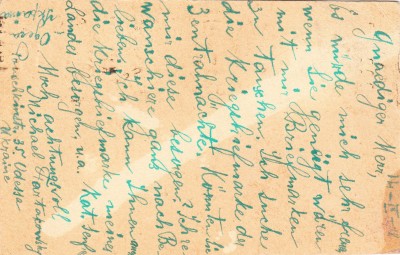 Gnädiger Herr,
Es würde mich sehr freuen
wenn Sie geneigt wären
mit mir Briefmarken
zu tauschen. Ich suche
die Kriegshilfmarke der
Zentralmächte. Könnten Sie
mir diese besorgen? Ihre
Wünsche ganz nach Be-
lieben. Ich kann Ihnen auch
die Kriegshilfmarke meines
Landes besorgen u.a.
Hochachtungsvoll
Michael
35 Odessa
Ukraine